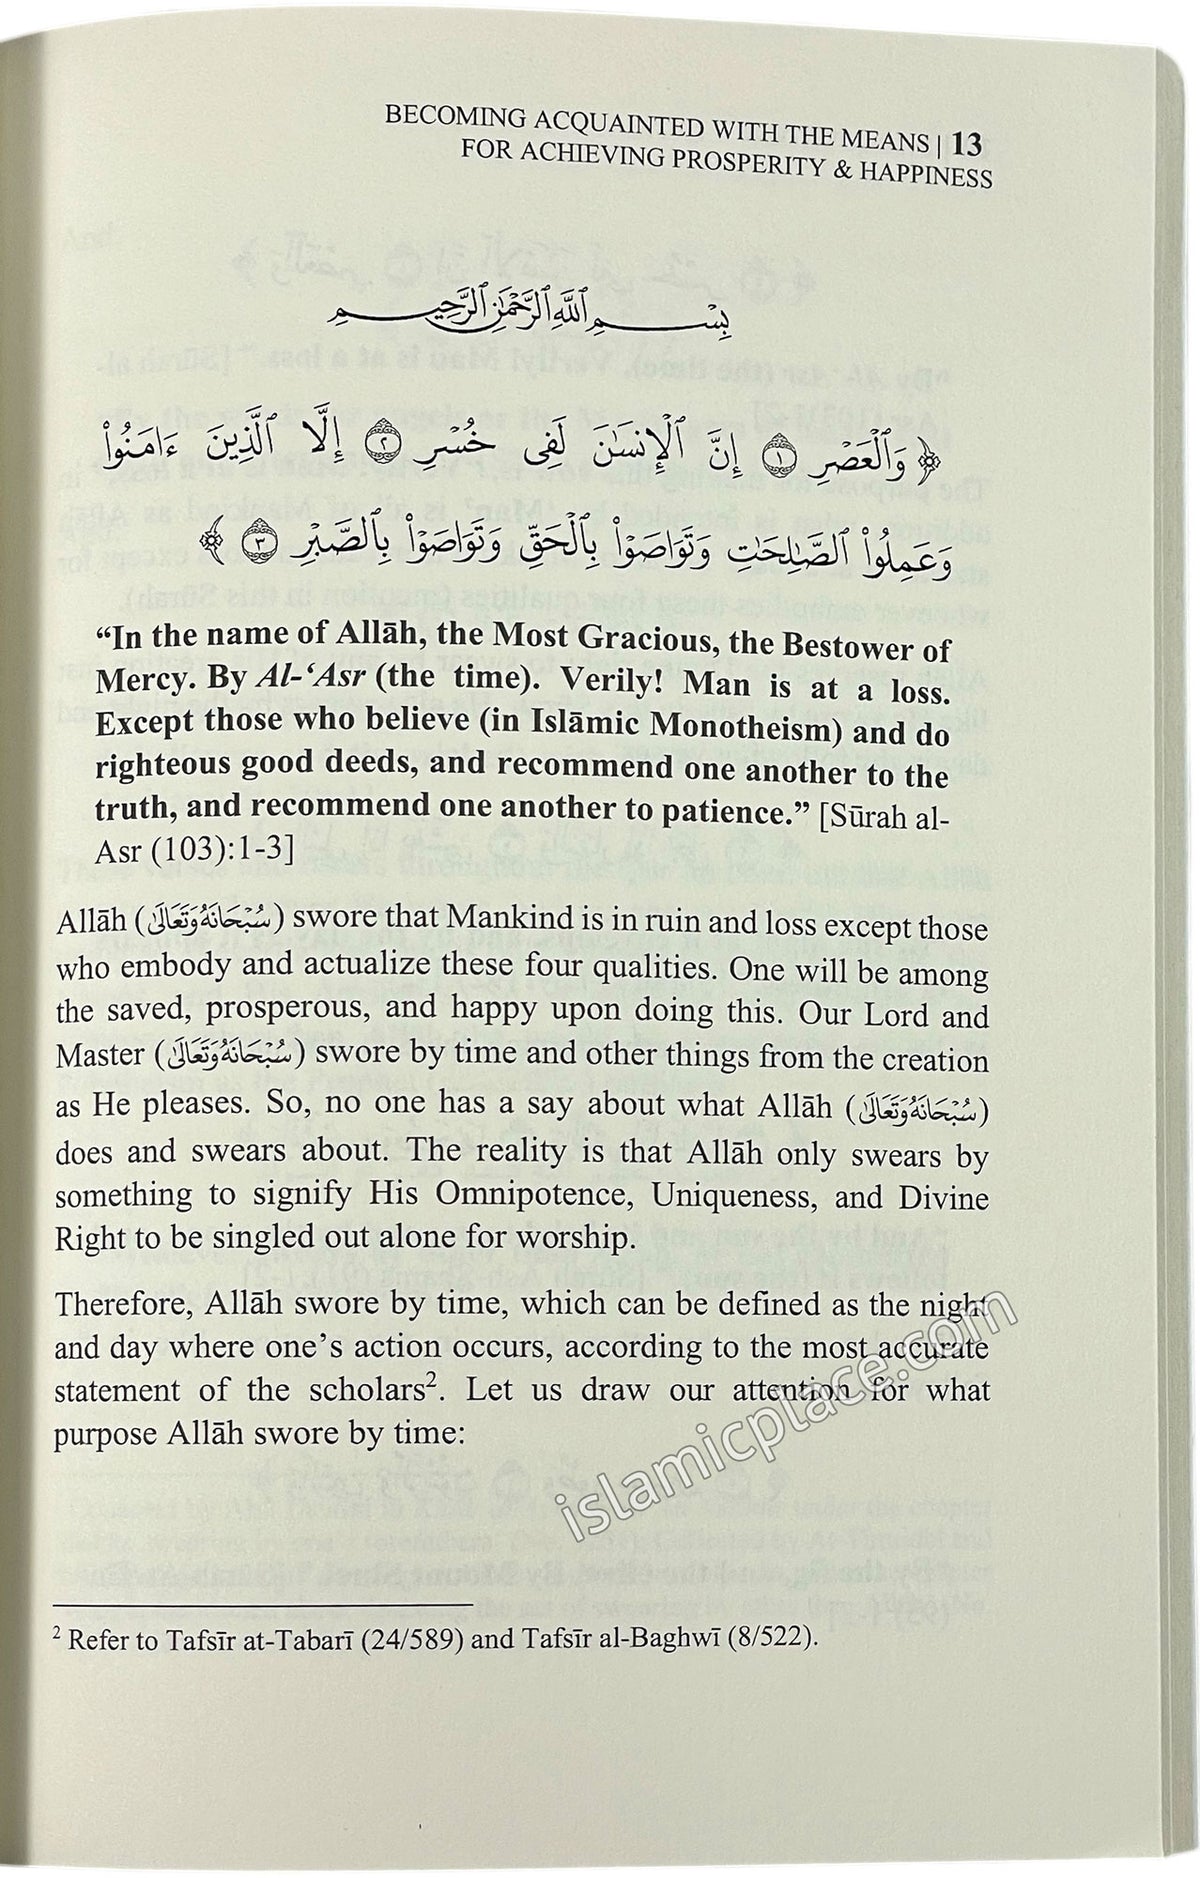 BECOMING ACQUAINTED WITH THE MEANS | 13
FOR ACHIEVING PROSPERITY & HAPPINESS
بِسْمِ ٱللَّهِ ٱلرَّحْمَٰنِ ٱلرَّحِيمِ
﴿ وَٱلْعَصْرِ ١ إِنَّ ٱلْإِنسَٰنَ لَفِى خُسْرٍ ٢ إِلَّا ٱلَّذِينَ ءَامَنُوا۟
وَعَمِلُوا۟ ٱلصَّٰلِحَٰتِ وَتَوَاصَوْا۟ بِٱلْحَقِّ وَتَوَاصَوْا۟ بِٱلصَّبْرِ ٣ ﴾
“In the name of Allāh, the Most Gracious, the Bestower of
Mercy. By Al-‘Asr (the time). Verily! Man is at a loss.
Except those who believe (in Islāmic Monotheism) and do
righteous good deeds, and recommend one another to the
truth, and recommend one another to patience.” [Sūrah al-
Asr (103):1-3]
Allāh (سُبْحَانَهُ وَتَعَالَىٰ) swore that Mankind is in ruin and loss except those
who embody and actualize these four qualities. One will be among
the saved, prosperous, and happy upon doing this. Our Lord and
Master (سُبْحَانَهُ وَتَعَالَىٰ) swore by time and other things from the creation
as He pleases. So, no one has a say about what Allāh (سُبْحَانَهُ وَتَعَالَىٰ)
does and swears about. The reality is that Allāh only swears by
something to signify His Omnipotence, Uniqueness, and Divine
Right to be singled out alone for worship.
Therefore, Allāh swore by time, which can be defined as the night
and day where one’s action occurs, according to the most accurate
statement of the scholars². Let us draw our attention for what
purpose Allāh swore by time:
islamicplace.com
² Refer to Tafsīr at-Tabarī (24/589) and Tafsīr al-Baghwī (8/522).